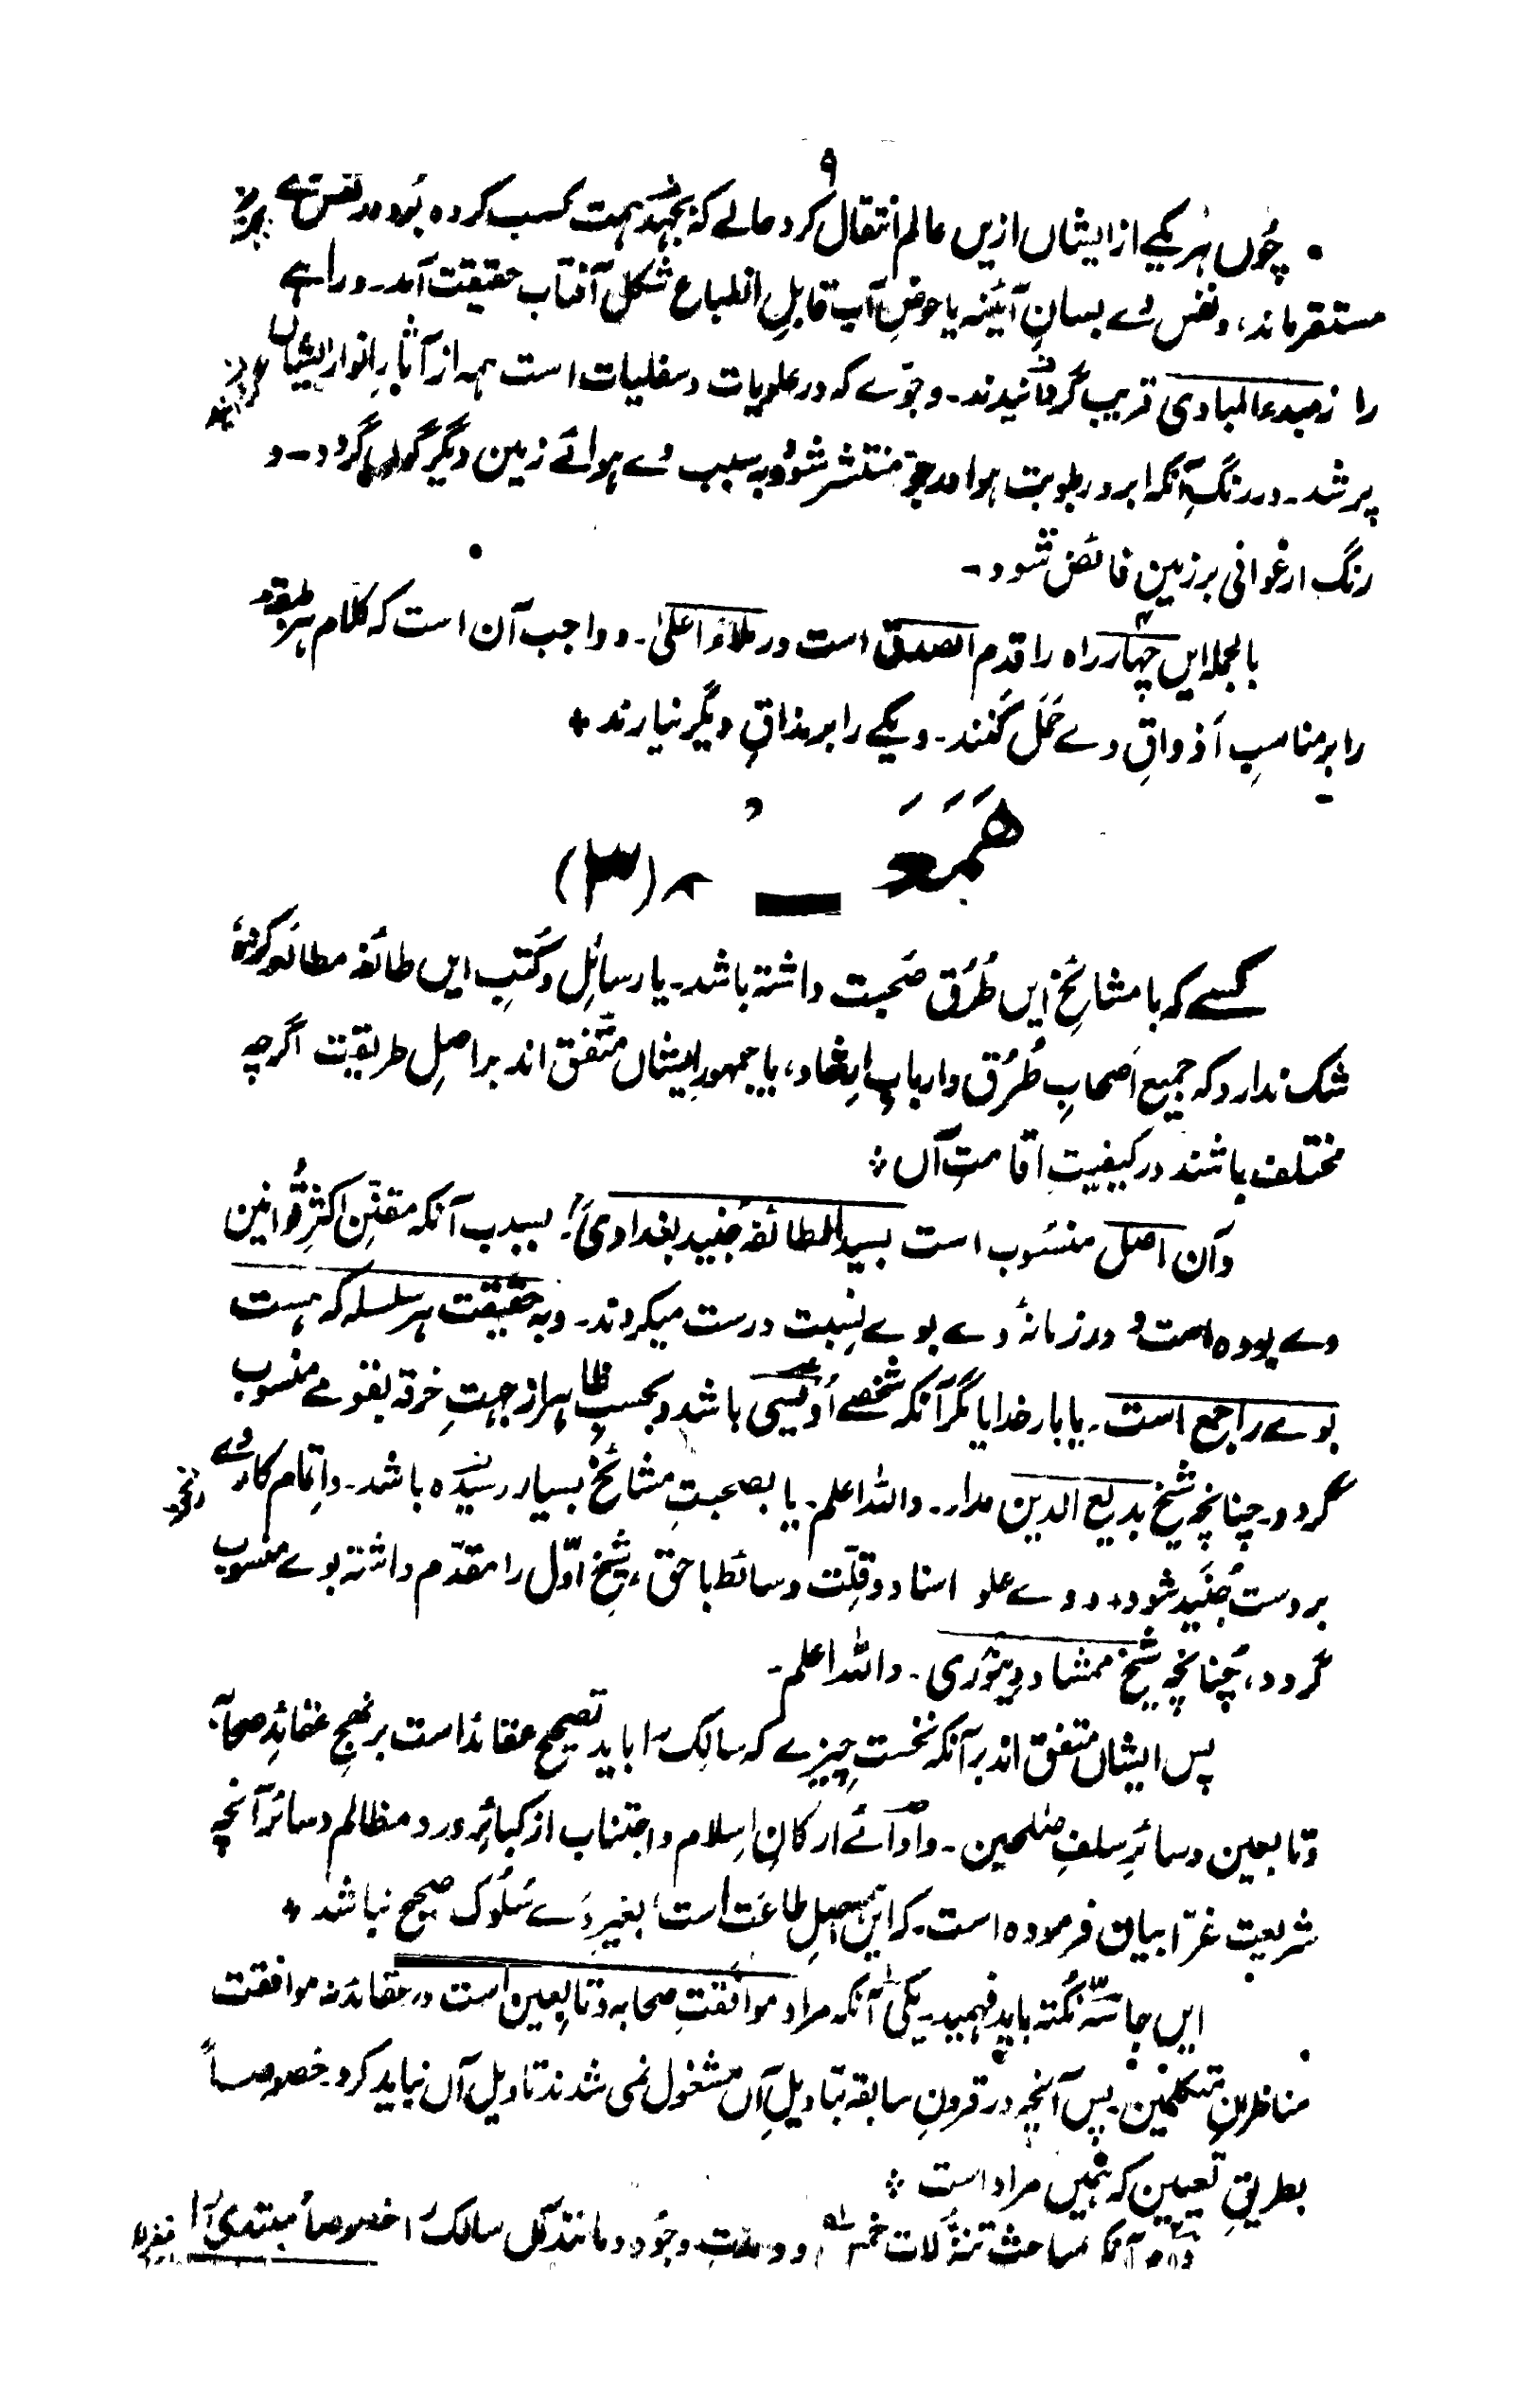 ۹
چُوں ہر یکے از ایشاں ازیں عالم انتقال کرد حالے کہ بجہد ہمت کسب کردہ بُود در نفس وے
مستقر ماند، و نفس وے بسانِ آئینہ یا حوضِ آب قابلِ انطباع شکل آفتاب حقیقت آمد۔ و راہے
را ز مبدء المبادی قریب گردانیدند۔ و جوّے کہ در علویات و سفلیات است ہمہ از آثارِ انوار ایشاں
پر شد۔ در رنگِ آنکہ ابر و رطوبت ہوا در جو منتشر شود و بہ سبب وے ہوائے زمین دیگر گوں گردد۔ و
رنگ ارغوانی بر زمین فائض شود۔
بالجملہ ایں چہار راہ را قدم الصدق است در ملاء اعلیٰ۔ و واجب آن است کہ کلام ہر طبقہ
را بر مناسبِ اَذواقِ وے حَمَل کُنند۔ و یکے را بر مذاقِ دیگر نیارند ؞
هَمَعَـــہ (۳)
کسے کہ با مشائخِ ایں طُرُق صُحبت داشتہ باشد۔ یا رسائِل و کُتبِ ایں طائفہ مطالعہ کردہ
شک ندارد کہ جمیع اَصحابِ طُرُق و اربابِ اِرشاد، یا جمہورِ ایشاں متّفق اند بر اصلِ طریقت اگرچہ
مختلف باشند در کیفیتِ اقامتِ آں ؞
و آن اصل منسُوب است بسید الطائفہ جُنید بغدادیؒ۔ بسبب آنکہ مقنّنِ اکثرِ قوانین
وے بودہ است و در زمانۂ وے بوے نِسبت درست میکردند۔ و بہ حقیقت ہر سلسلہ کہ ہست
بوے راجع است۔ یا بار خدایا مگر آنکہ شخصے اُویسی باشد و بحسبِ ظاہر از جہتِ خرقہ بقومے منسوب
گردد۔ چنانچہ شیخ بدیع الدین مدار۔ واللہ اعلم۔ یا بصحبتِ مشائخ بسیار رسیدہ باشد۔ و اِتمام کار وے
بر دست جُنَید شود، و وے علو اسناد و قِلّت وسائط با حق، شیخِ اوّل را مقدّم داشتہ بوے منسوب
گردد، چُنانچہ شیخ ممشاد دِینوَری۔ واللہ اعلم۔
پس ایشاں متفق اند بر آنکہ نخست چیزے کہ سالِک را باید تصحیح عقائد است بر نہجِ عقائدِ صحابہ
و تابعین و سائرِ سلفِ صٰلحین۔ و اَدائے ارکانِ اِسلام و اجتناب از کبائرِ و رد مظالم و سائر آنچہ
شریعت غرّا بیان فرمودہ است۔ کہ ایں ہمہ اصلِ طاعت است، بغیر وَے سُلُوک صحیح نباشد ؞
ایں جا سہّ نکُتہ باید فہمید۔ یکیٰ آنکہ مراد موافقتِ صحابہ و تابِعین است در عقائد نہ موافقت
مناظرینِ متکلّمین۔ پس آنچہ در قرونِ سابقہ بتاویلِ آں مشغول نمی شدند تاویل آں نباید کرد۔ خصوصاً
بطریقِ تعیین کہ ہمیں مراد است ؞
دوم آنکہ مباحث تنزّلات خمسہ و وحدتِ وجُود و مانند آں سالک را خصوصاً مبتدی را